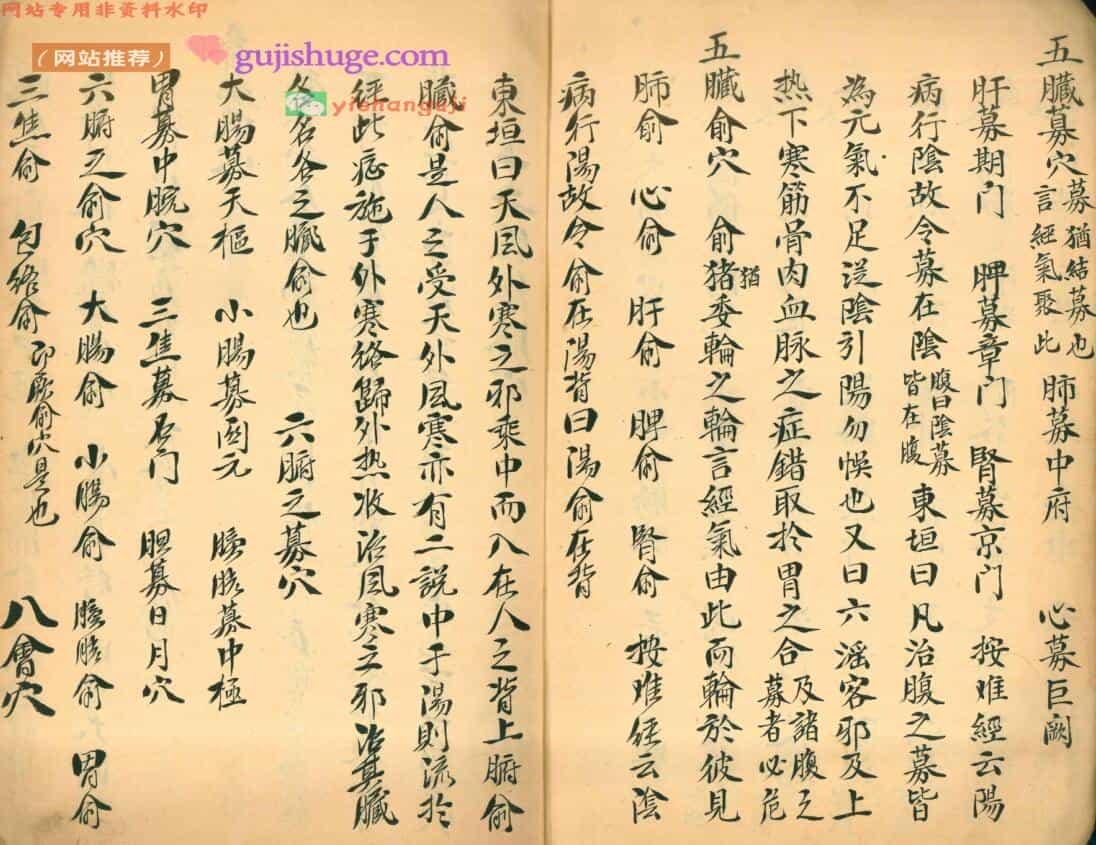 网站专用非资料水印
（网站推荐）
gujishuge.com
yishanguji
五臟募穴 募猶結募也言經氣聚此 肺募中府 心募巨闕
肝募期门 脾募章门 腎募京门 按难經云陽
病行陰故令募在陰 腹曰陰募皆在腹 東垣曰凡治腹之募皆
為元氣不足從陰引陽勿悮也又曰六滛客邪及上
热下寒筋骨肉血脉之症錯取於胃之合 及諸腹之募者必危
五臟俞穴 俞猪猶委輪之輪言經氣由此而輪於彼見
肺俞 心俞 肝俞 脾俞 腎俞 按难经云陰
病行陽故令俞在陽背曰陽俞在背
東垣曰天風外寒之邪乘中而入在人之背上腑俞
臟俞是人之受天外风寒亦有二説中于湯則流於
经此症施于外寒络歸外热收治風寒之邪治其臟
各名各之臟俞也 六腑之募穴
大腸募天樞 小腸募関元 膀胱募中極
胃募中脘穴 三焦募石门 胆募日月穴
六腑之俞穴 大腸俞 小腸俞 膀胱俞 胃俞
三焦俞 包络俞 即厥俞穴是也 八會穴